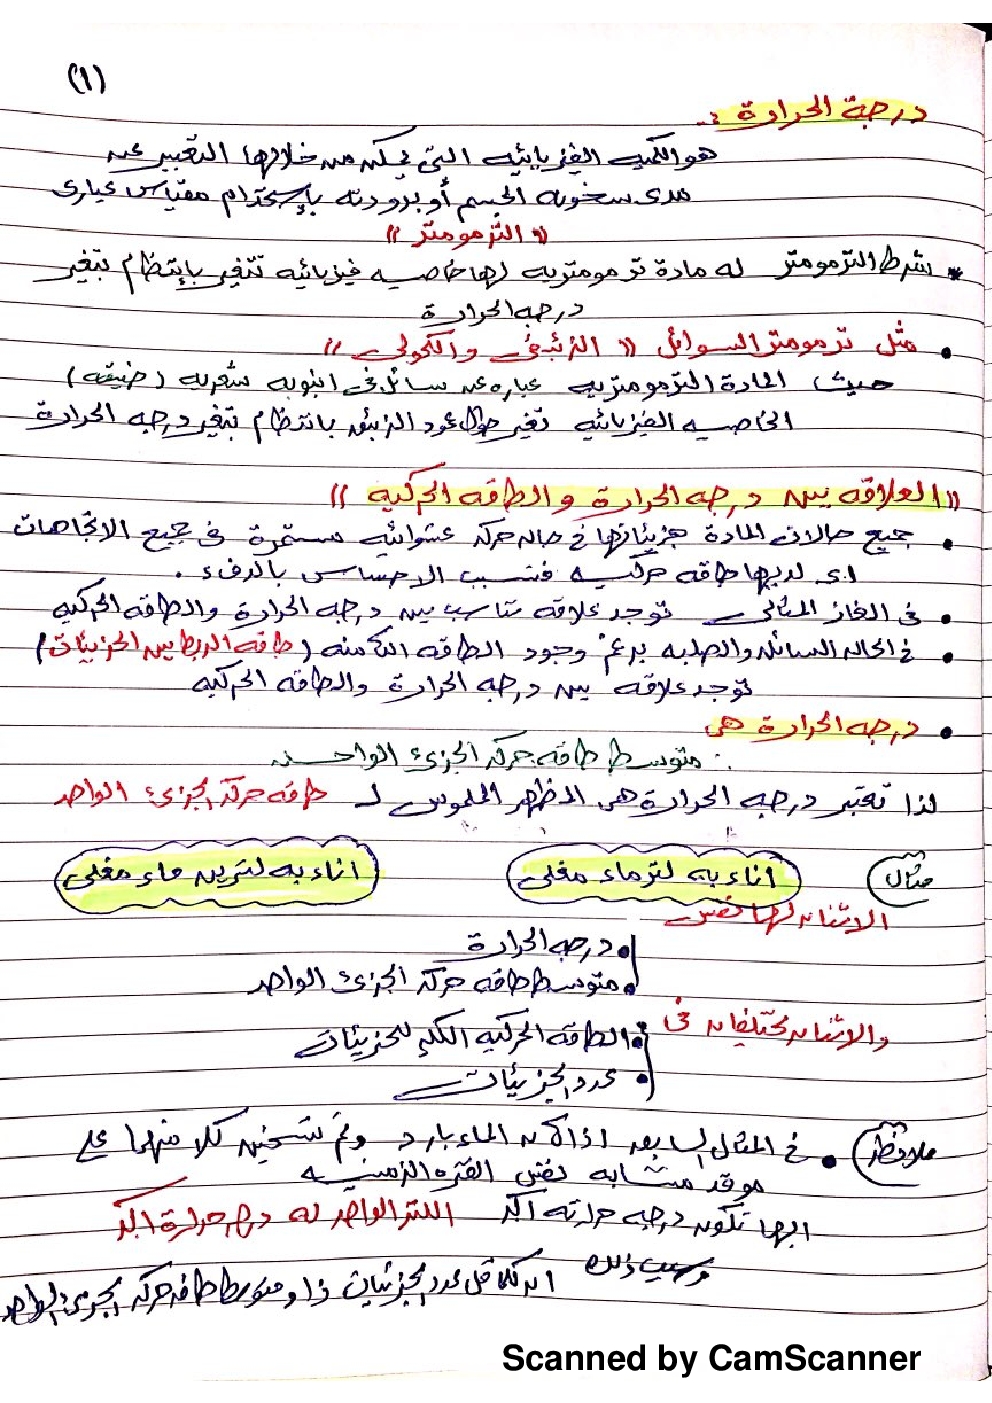 (1)
درجة الحرارة :-
هو الكميه الفيزيائيه التي يمكن من خلالها التعبير عن
مدى سخونه الجسم أو برودته بإستخدام مقياس عيارى
" الترمومتر "
* شرط الترمومتر له مادة ترمومتريه لها خاصيه فيزيائيه تتغير بإنتظام بتغير
درجه الحرارة
• مثل ترمومتر السوائل " الزئبقى والكحولى "
حيث المادة الترمومتريه عباره عن سائل فى انبوبه شعريه ( ضيقه )
الخاصيه الفيزيائيه تغير طول عمود الزئبق بانتظام بتغير درجه الحرارة
" العلاقه بين درجه الحرارة والطاقه الحركيه "
• جميع حالات المادة جزيئاتها فى حاله حركه عشوائيه مستمرة فى جميع الاتجاهات
اى لديها طاقه حركيه فتسبب الاحساس بالدفء .
• فى الغاز المثالى توجد علاقه تناسب بين درجه الحرارة والطاقه الحركيه
• فى الحاله السائله والصلبه برغم وجود الطاقه الكامنه ( طاقه الربط بين الجزيئات )
توجد علاقه بين درجه الحرارة والطاقه الحركيه
• درجه الحرارة هى
:- متوسط طاقه حركه الجزئ الواحد
لذا تعتبر درجه الحرارة هى المظهر الملموس لـ طاقه حركه الجزئ الواحد
مثال أناء به لتر ماء مغلى اناء به لترين ماء مغلى
الاثنان لهما نفس
• درجه الحرارة
• متوسط طاقه حركه الجزئ الواحد
والاثنان مختلفان فى
• الطاقه الحركيه الكليه للجزيئات
• عدد الجزيئات
ملاحظه • فى المثال السابق اذا كان الماء بارد وتم تسخين كلا منهما على
موقد متشابه نفس الفتره الزمنيه
ايهما تكون درجه حرارته اكبر اللتر الواحد له درجه حرارة اكبر
وسبب ذلك ان كلما قل عدد الجزيئات زاد متوسط طاقه حركه الجزئ الواحد
Scanned by CamScanner